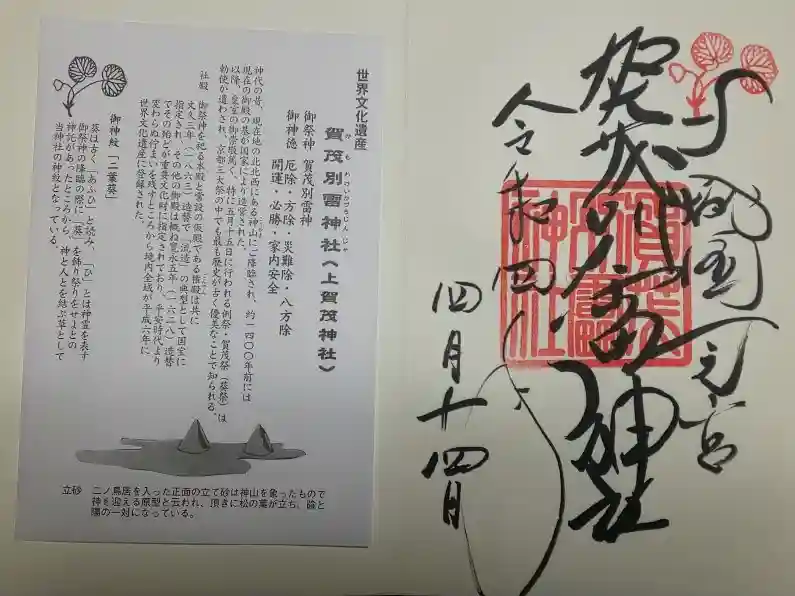 山城国一之宮
賀茂別雷神社
令和四年
四月十四日
賀茂
別雷
神社
世界文化遺産
賀茂別雷神社(上賀茂神社)
かもわけいかづちじんじゃ
御祭神 賀茂別雷神
御神徳 厄除・方除・災難除・八方除
開運・必勝・家内安全
神代の昔、現在地の北北西にある神山にご降臨され、約一四〇〇年前には
現在の御殿の基が国家により造営された。
以降、皇室の御崇敬篤く、特に五月十五日に行われる例祭・賀茂祭(葵祭)は
勅使が遣わされ、京都三大祭の中でも最も歴史が古く優美なことで知られる。
社殿 御祭神を祀る本殿と常設の仮殿である権殿は共に
文久三年(一八六三)造替で「流造」の典型として国宝に
指定され、その他の御殿は概ね寛永五年(一六二八)造替
でその殆どが重要文化財に指定されており、平安時代より
変わらぬ佇まいを残すところから境内全域が平成六年に
世界文化遺産に登録された。
御神紋「二葉葵」
葵は古く「あふひ」と読み、「ひ」とは神霊を表す
御祭神の降臨の際に「葵」を飾り祭りをせよとの
神託があったところから、神と人とを結ぶ草として
当神社の神紋となっている。
立砂 二ノ鳥居を入った正面の立て砂は神山を象ったもので
神を迎える原型と云われ、頂きに松の葉が立ち、陰と
陽の一対になっている。